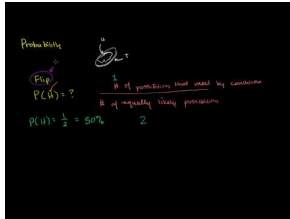 Probability
H
T
Flip
P(H) = ?
1
# of possibilities that meet my condition
# of equally likely possibilities
P(H) = 1/2 = 50%
2